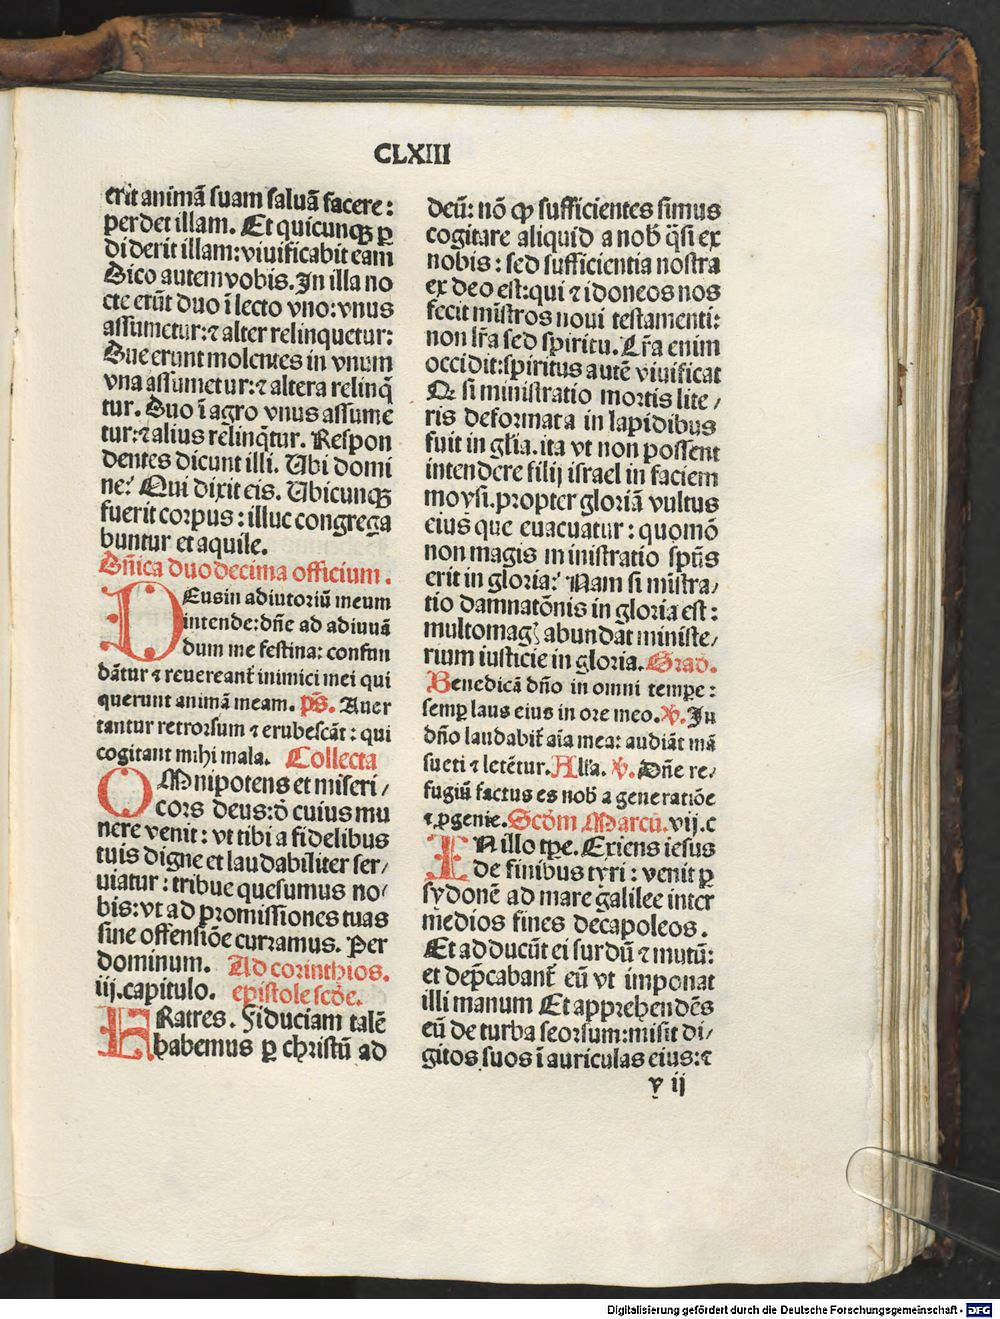 CLXIII
erit animã suam saluã facere:
perdet illam. Et quicunqꝫ ꝑ
diderit illam:viuificabit eam
Dico autem vobis. In illa no
cte erũt duo ĩ lecto vno:vnus
assumetur:⁊ alter relinquetur:
Due erunt molentes in vnum
vna assumetur:⁊ altera relinq̃
tur. Duo ĩ agro vnus assume
tur:⁊ alius relinq̃tur. Respon
dentes dicunt illi. Ubi domi
ne? Qui dixit eis. Ubicunqꝫ
fuerit corpus : illuc congrega
buntur et aquile.
Dñica duodecima officium.
DEus in adiutoriũ meum
intende:dñe ad adiuuã
dum me festina: confun
dãtur ⁊ reuereant̃ inimici mei qui
querunt animã meam. ps̃. Auer
tantur retrorsum ⁊ erubescãt : qui
cogitant mihi mala. Collecta
OMnipotens et miseri/
cors deus:d̃ cuius mu
nere venit : vt tibi a fidelibus
tuis digne et laudabiliter ser/
uiatur : tribue quesumus no/
bis:vt ad ꝓmissiones tuas
sine offensiõe curramus. Per
dominum. Ad corinthios.
iij.capitulo. epistole scd̃e.
FRatres. Fiduciam talẽ
habemus ꝑ christũ ad
deũ: nõ ꝙ sufficientes simus
cogitare aliquid a nob̃ q̃si ex
nobis : sed sufficientia nostra
ex deo est:qui ⁊ idoneos nos
fecit mĩstros noui testamenti:
non lr̃a sed spiritu. Lr̃a enim
occidit:spiritus autẽ viuificat
Q̃ si ministratio mortis lite/
ris deformata in lapidibus
fuit in glĩa. ita vt non possent
intendere filij israel in faciem
moysi. propter gloriã vultus
eius que euacuatur : quomõ
non magis ministratio spũs
erit in gloria? Nam si mĩstra/
tio damnatõnis in gloria est :
multomagꝭ abundat ministe/
rium iusticie in gloria. Grad.
Benedicã dño in omni tempe :
semꝑ laus eius in ore meo. ꝟ. In
dño laudabit̃ aĩa mea: audiãt mã
sueti ⁊ letẽtur. Alľa. ꝟ. Dñe re/
fugiũ factus es nob̃ a generatiõe
⁊ ꝓgenie. Scd̃m Marcũ. vij.c
IN illo tꝑe. Exiens iesus
de finibus tyri : venit ꝑ
sydonẽ ad mare galilee inter
medios fines decapoleos.
Et adducũt ei surdũ ⁊ mutũ:
et dep̃cabant̃ eũ vt imponat
illi manum Et apprehendẽs
eũ de turba seorsum:misit di/
gitos suos ĩ auriculas eius:⁊
y ij
Digitalisierung gefördert durch die Deutsche Forschungsgemeinschaft - DFG